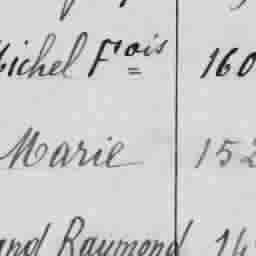 Michel Fois 160
Marie 152
and Raymond 14